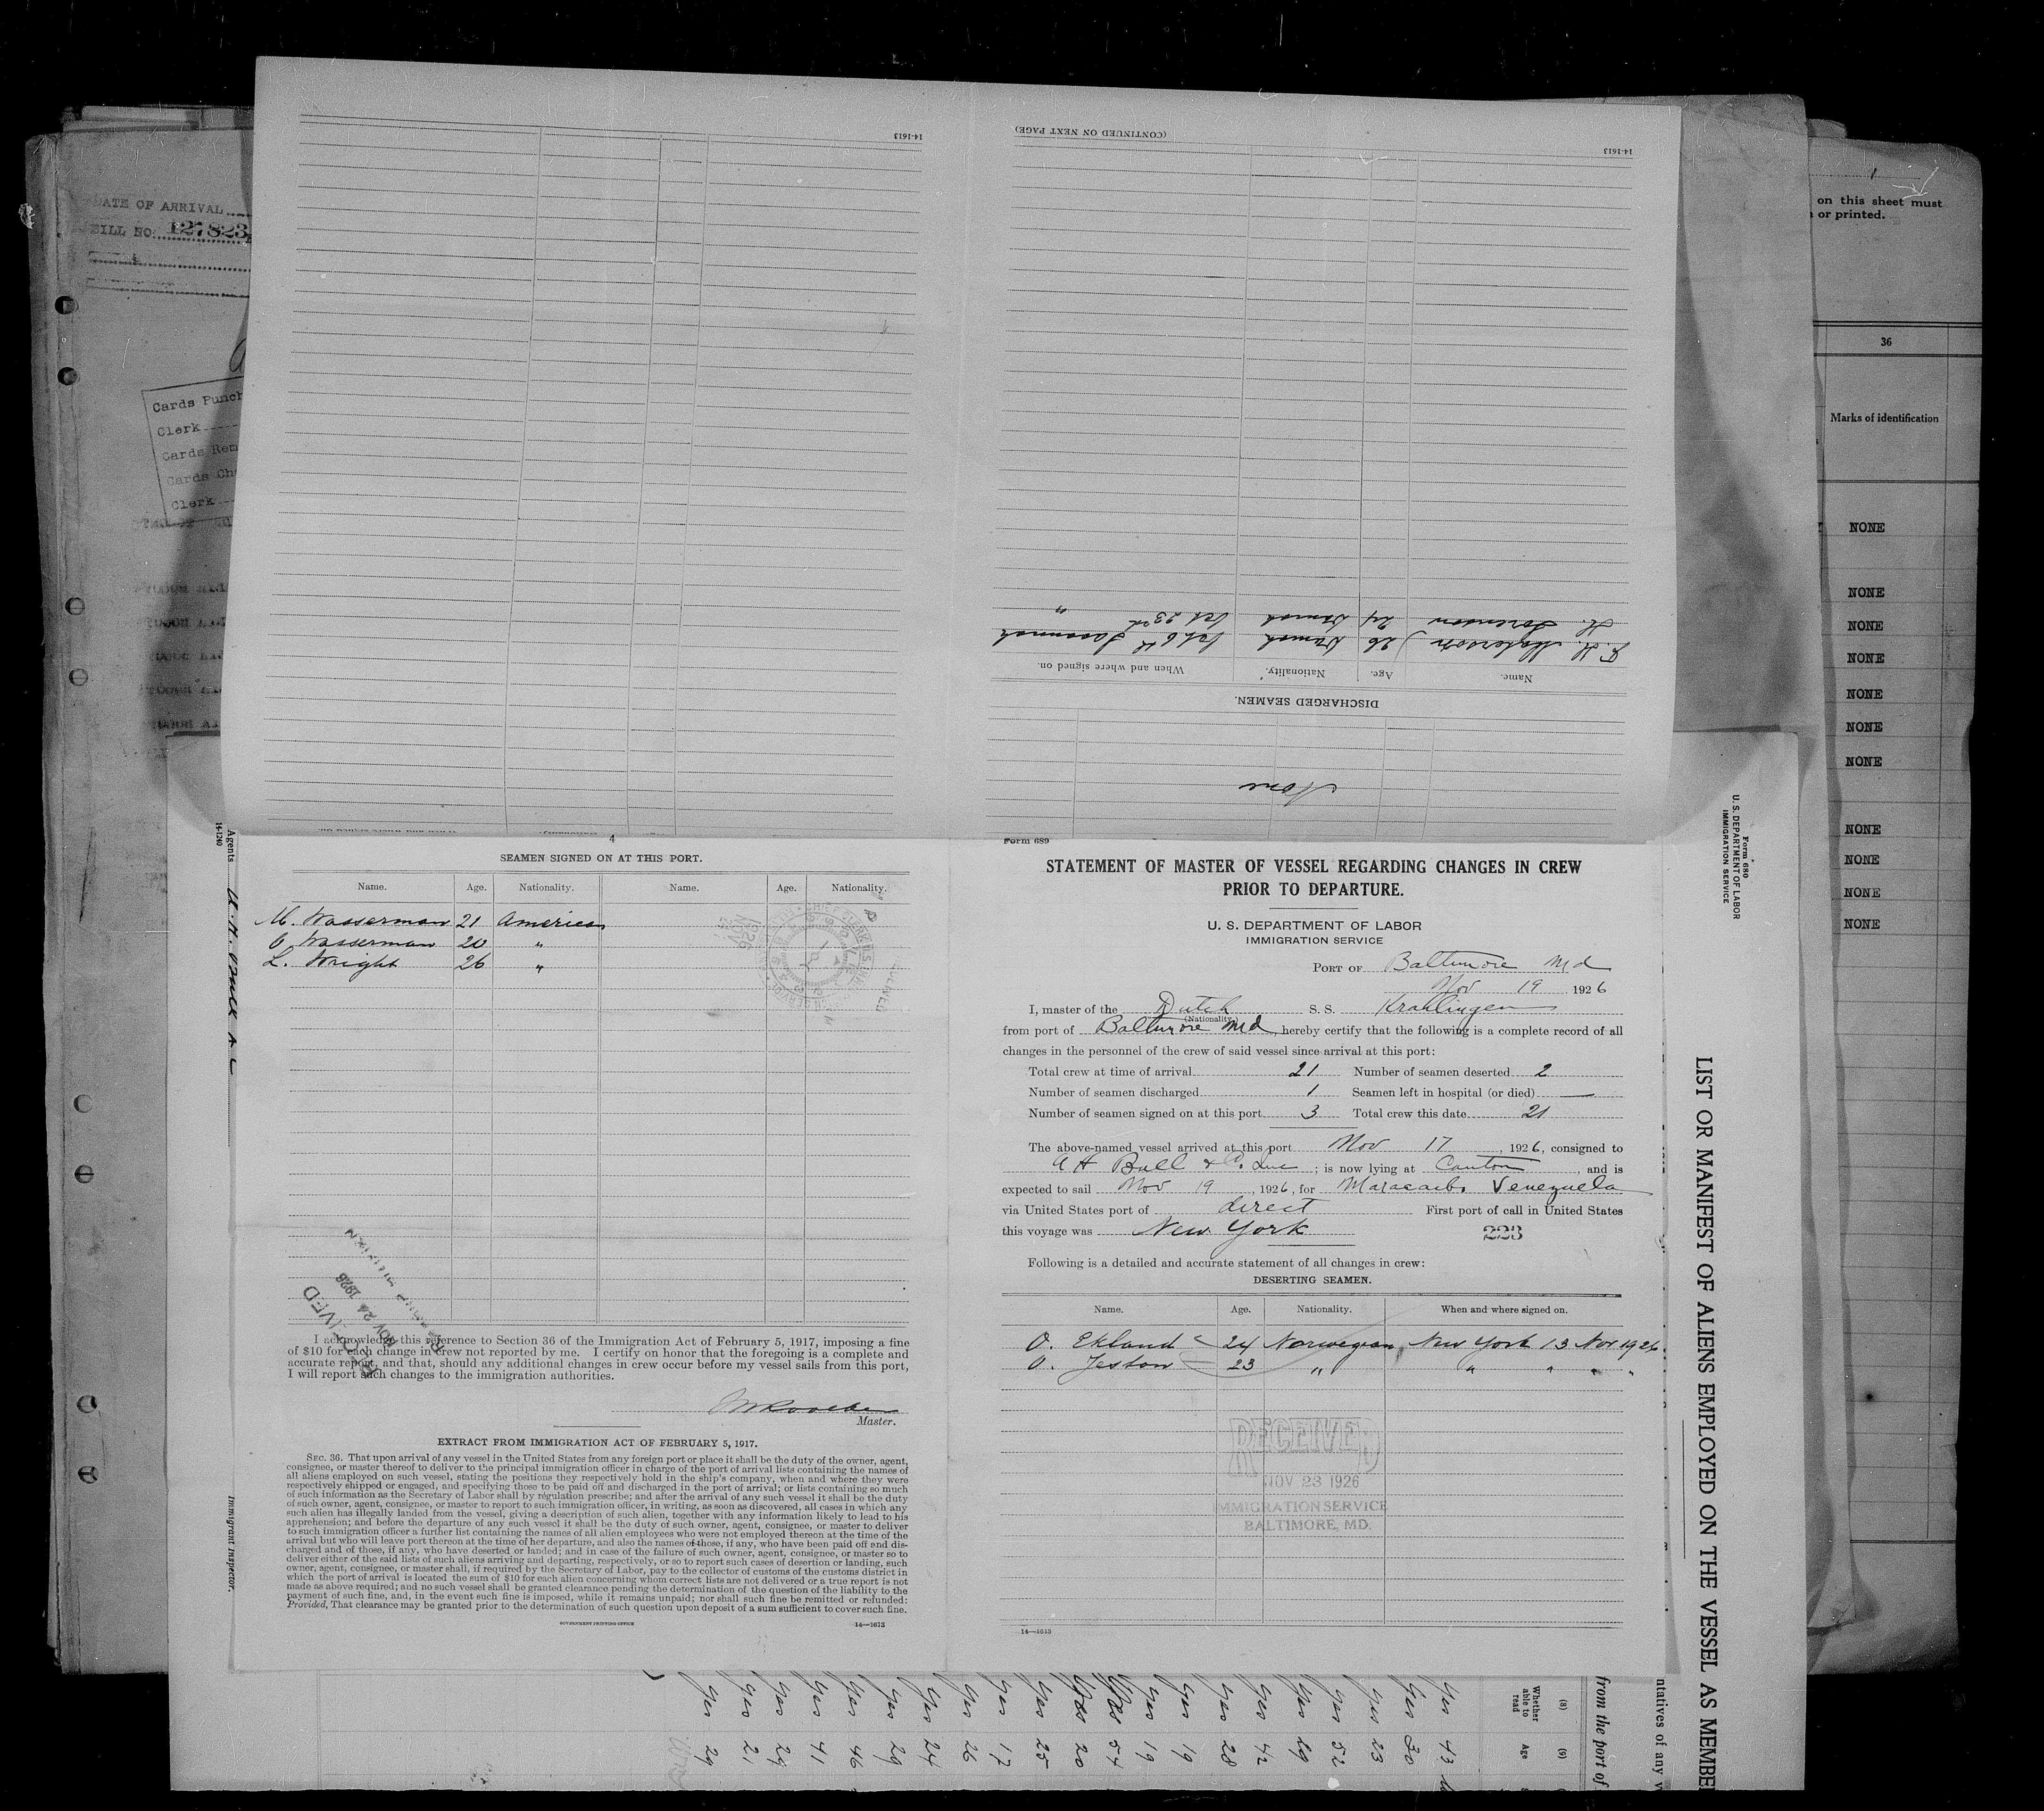 14-1613
(CONTINUED ON NEXT PAGE)
14-1613
DATE OF ARRIVAL
BILL NO. 127823
Cards Punch
Clerk
Cards Rem
Cards Ch
Clerk
on this sheet must
or printed.
36
Marks of identification
NONE
NONE
NONE
NONE
NONE
NONE
NONE
NONE
NONE
NONE
NONE
DISCHARGED SEAMEN.
Name. Age. Nationality. When and where signed on.
26 Danish Oct 6th Savannah
H. Sorenson 24 Danish Oct 23rd "
None
4
SEAMEN SIGNED ON AT THIS PORT.
Name. Age. Nationality. Name. Age. Nationality.
M. Wasserman 21 American
O Wasserman 20 "
L. Wright 26 "
RECEIVED
NOV 24 1926
I acknowledge this reference to Section 36 of the Immigration Act of February 5, 1917, imposing a fine
of $10 for each change in crew not reported by me. I certify on honor that the foregoing is a complete and
accurate report, and that, should any additional changes in crew occur before my vessel sails from this port,
I will report such changes to the immigration authorities.
Master.
EXTRACT FROM IMMIGRATION ACT OF FEBRUARY 5, 1917.
SEC. 36. That upon arrival of any vessel in the United States from any foreign port or place it shall be the duty of the owner, agent,
consignee, or master thereof to deliver to the principal immigration officer in charge of the port of arrival lists containing the names of
all aliens employed on such vessel, stating the positions they respectively hold in the ship's company, when and where they were
respectively shipped or engaged, and specifying those to be paid off and discharged in the port of arrival; or lists containing so much
of such information as the Secretary of Labor shall by regulation prescribe; and after the arrival of any such vessel it shall be the duty
of such owner, agent, consignee, or master to report to such immigration officer, in writing, as soon as discovered, all cases in which any
such alien has illegally landed from the vessel, giving a description of such alien, together with any information likely to lead to his
apprehension; and before the departure of any such vessel it shall be the duty of such owner, agent, consignee, or master to deliver
to such immigration officer a further list containing the names of all alien employees who were not employed thereon at the time of the
arrival but who will leave port thereon at the time of her departure, and also the names of those, if any, who have been paid off and dis-
charged and of those, if any, who have deserted or landed; and in case of the failure of such owner, agent, consignee, or master so to
deliver either of the said lists of such aliens arriving and departing, respectively, or so to report such cases of desertion or landing, such
owner, agent, consignee, or master shall, if required by the Secretary of Labor, pay to the collector of customs of the customs district in
which the port of arrival is located the sum of $10 for each alien concerning whom correct lists are not delivered or a true report is not
made as above required; and no such vessel shall be granted clearance pending the determination of the question of the liability to the
payment of such fine, and, in the event such fine is imposed, while it remains unpaid; nor shall such fine be remitted or refunded:
Provided, That clearance may be granted prior to the determination of such question upon deposit of a sum sufficient to cover such fine.
GOVERNMENT PRINTING OFFICE 14—1613
Form 689
STATEMENT OF MASTER OF VESSEL REGARDING CHANGES IN CREW
PRIOR TO DEPARTURE.
U. S. DEPARTMENT OF LABOR
IMMIGRATION SERVICE
PORT OF Baltimore Md
Nov 19 1926
I, master of the Dutch S. S. Kralingen
(Nationality)
from port of Baltimore Md, hereby certify that the following is a complete record of all
changes in the personnel of the crew of said vessel since arrival at this port:
Total crew at time of arrival 21 Number of seamen deserted 2
Number of seamen discharged 1 Seamen left in hospital (or died) —
Number of seamen signed on at this port 3 Total crew this date 21
The above-named vessel arrived at this port Nov 17, 1926, consigned to
A H Bull & Co. Inc; is now lying at Canton, and is
expected to sail Nov 19, 1926, for Maracaibo Venezuela
via United States port of direct First port of call in United States
this voyage was New York
223
Following is a detailed and accurate statement of all changes in crew:
DESERTING SEAMEN.
Name. Age. Nationality. When and where signed on.
O. Ekland 24 Norwegian New York 13 Nov 1926
O. Jeston 23 " " " " "
RECEIVED
NOV 23 1926
IMMIGRATION SERVICE
BALTIMORE, MD.
14—1613
14-1240
Agents
Immigrant Inspector.
Form 680
U. S. DEPARTMENT OF LABOR
IMMIGRATION SERVICE
LIST OR MANIFEST OF ALIENS EMPLOYED ON THE VESSEL AS MEMBE
ntatives of any v
from the port of
(8) (9)
Whether able to read Age
Yes 43
Yes 30
Yes 23
Yes 52
Yes 29
Yes 42
Yes 28
Yes 19
Yes 19
Yes 54
Yes 20
Yes 25
Yes 17
Yes 26
Yes 24
Yes 29
Yes 46
Yes 41
Yes 29
Yes 21
Yes 29